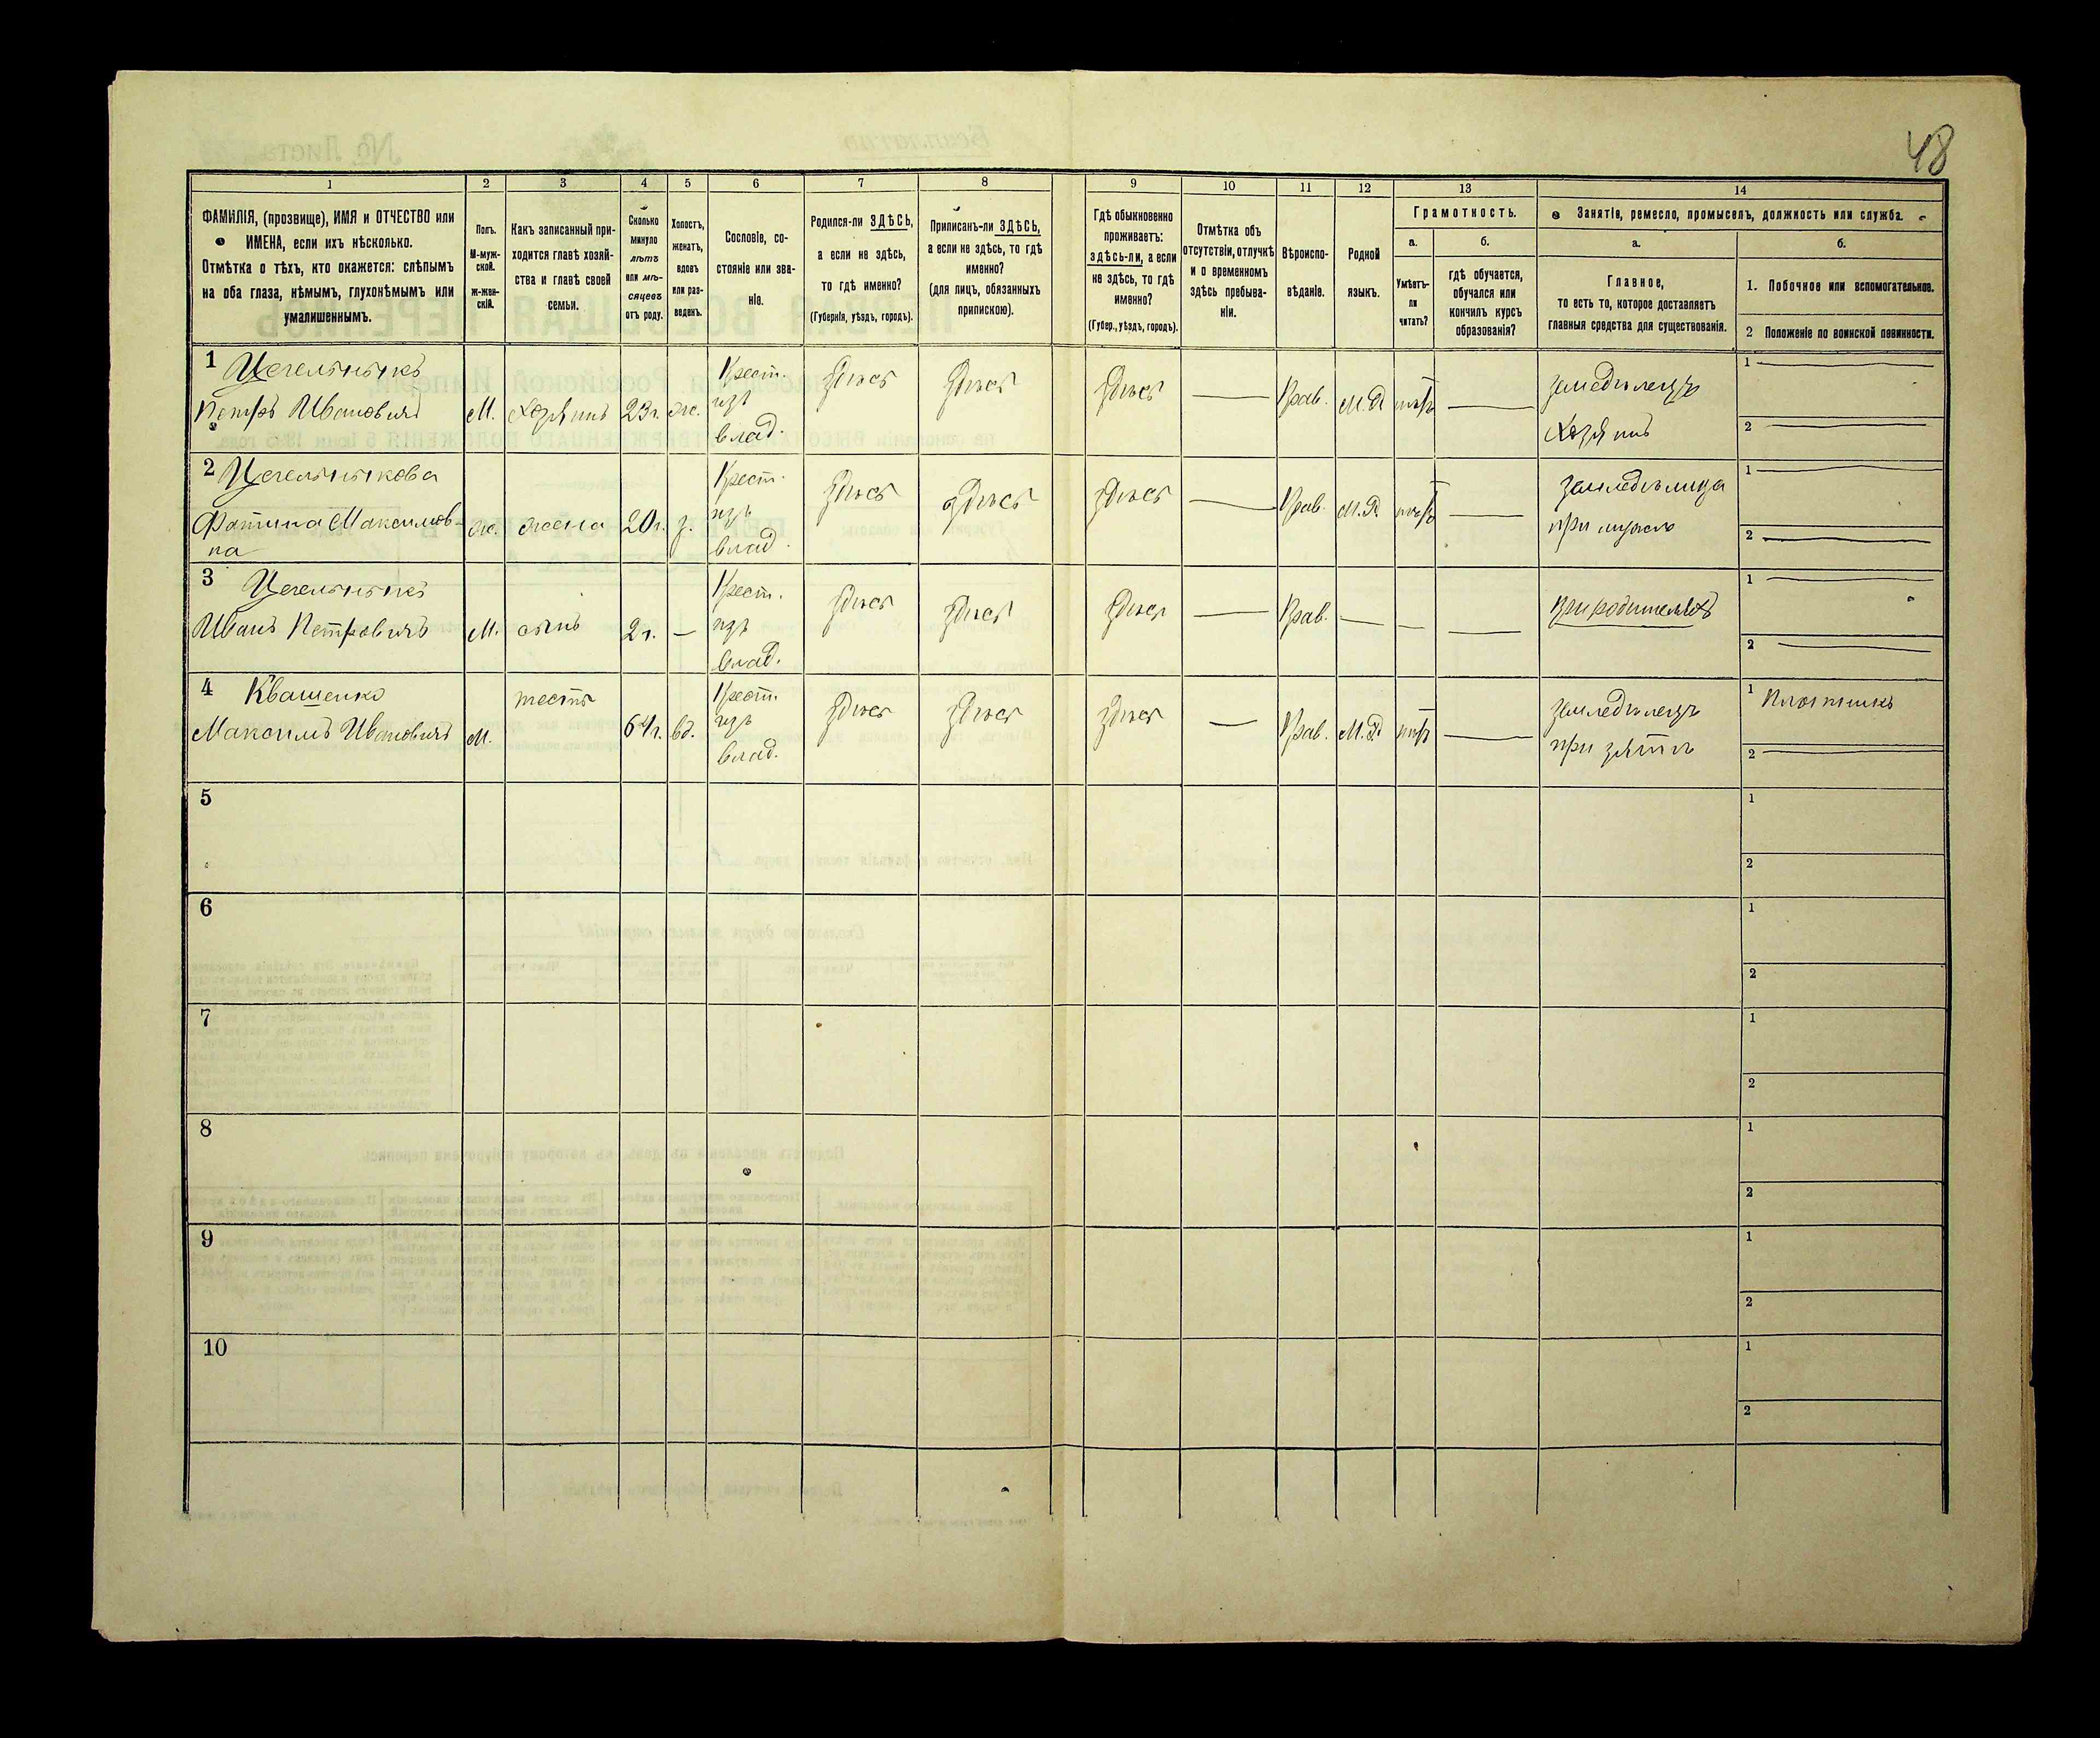 48
1 2 3 4 5 6 7 8 9 10 11 12 13 14
ФАМИЛІЯ, (прозвище), ИМЯ и ОТЧЕСТВО или
ИМЕНА, если ихъ нѣсколько.
Отмѣтка о тѣхъ, кто окажется: слѣпымъ
на оба глаза, нѣмымъ, глухонѣмымъ или
умалишеннымъ.
Полъ.
М-муж-
ской.
ж-жен-
скій.
Какъ записанный при-
ходится главѣ хозяй-
ства и главѣ своей
семьи.
Сколько
минуло
лѣтъ
или мѣ-
сяцевъ
отъ роду.
Холостъ,
женатъ,
вдовъ
или раз-
веденъ.
Сословіе, со-
стояніе или зва-
ніе.
Родился-ли ЗДѢСЬ,
а если не здѣсь,
то гдѣ именно?
(Губернія, уѣздъ, городъ).
Приписанъ-ли ЗДѢСЬ,
а если не здѣсь, то гдѣ
именно?
(для лицъ, обязанныхъ
припискою).
Гдѣ обыкновенно
проживаетъ:
здѣсь-ли, а если
не здѣсь, то гдѣ
именно?
(Губер., уѣздъ, городъ).
Отмѣтка объ
отсутствіи, отлучкѣ
и о временномъ
здѣсь пребыва-
ніи.
Вѣроиспо-
вѣданіе.
Родной
языкъ.
Грамотность.
а.
Умѣетъ-
ли
читать?
б.
гдѣ обучается,
обучался или
кончилъ курсъ
образованія?
Занятіе, ремесло, промыселъ, должность или служба.
а.
Главное,
то есть то, которое доставляетъ
главныя средства для существованія.
б.
1. Побочное или вспомогательное.
2 Положеніе по воинской повинности.
1 Цегельникъ
Петръ Ивановичъ М. хозяинъ 23 г. ж. Крест. изъ влад. здѣсь здѣсь здѣсь — Прав. М.Р. нѣтъ — земледѣлецъ хозяинъ 1 — 2 —
2 Цегельникова
Фатина Максимов-
на ж. жена 20 г. з. Крест. изъ влад. здѣсь здѣсь здѣсь — Прав. М.Р. нѣтъ — земледѣлица при мужѣ 1 — 2 —
3 Цегельникъ
Иванъ Петровичъ М. сынъ 2 г. — Крест. изъ влад. здѣсь здѣсь здѣсь — Прав. — — — при родителяхъ 1 — 2 —
4 Квашенко
Максимъ Ивановичъ М. тесть 64 г. вд. Крест. изъ влад. здѣсь здѣсь здѣсь — Прав. М.Р. нѣтъ — земледѣлецъ при зятѣ 1 Плотникъ 2 —
5 1 2
6 1 2
7 1 2
8 1 2
9 1 2
10 1 2